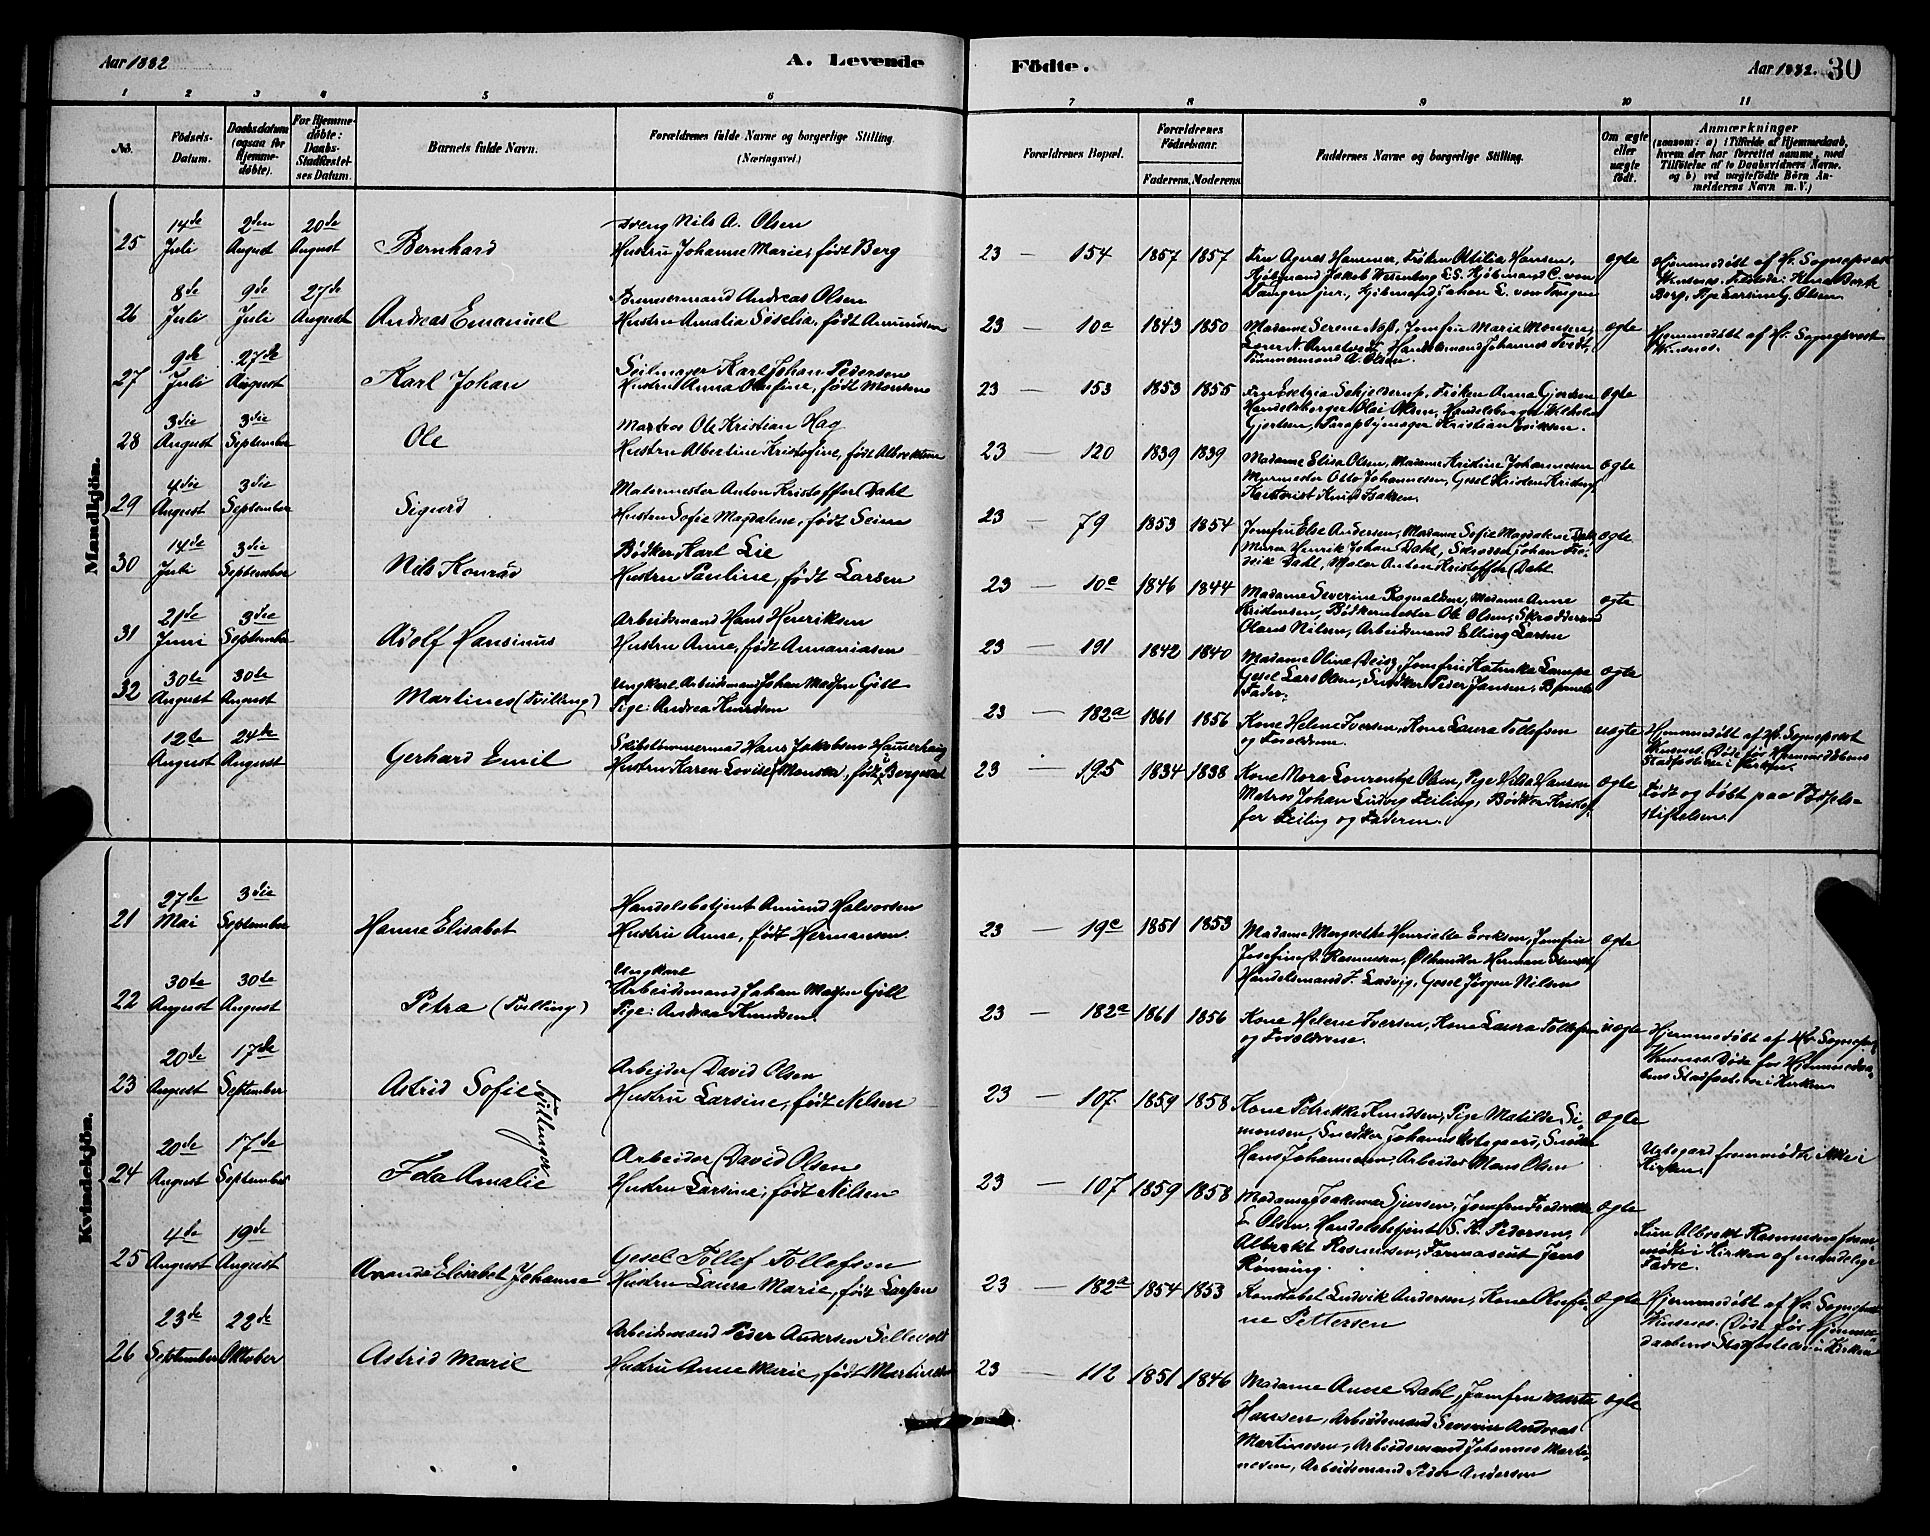 Aar 1882
A. Levende
1 2 3 4 5 6
No.
Födsels-
Datum.
Daabsdatum
(ogsaa for
Hjemme-
döbte).
For Hjemme-
döbte:
Daabs-
Stadfæstel-
ses Datum.
Barnets fulde Navn.
Forældrenes fulde Navne og borgerlige Stilling.
(Næringsvei.)
Mandkjön.
14de 2den 20de Dreng Nils A. Olsen
25 Juli August August Bernhard Hustru Johanne Marie, født Berg
8de 9de 27de Tømmermand Andreas Olsen
26 Juli Juli August Andreas Emanuel Hustru Amalia født Amundsen
9de 27de Seilmager Karl Johan Pedersen
27 Juli August Karl Johan Hustru Anna født Monsen
3die 3die Matros Ole Kristian Hag
28 August September Ole Hustru Albertine Kristofine, født
4die 3die Malermester Anton Kristoffer Dahl
29 August September Sigurd Hustru Sofie Magdalene, født
14de 3die Bødker Karl Lie
30 Juli September Nils Konrad Hustru Pauline, født Larsen
21de 3die Arbeidsmand Hans Henriksen
31 Juni September Adolf Hansinus Hustru Anne, født Annaniasen
30te 30te Ungkarl Arbeidsmand Johan Madsen Gill
32 August August Martines (Tvilling) Pige: Andrea Knudsen
12te 24de Skibstømmermand Hans Jakobsen
August August Gerhard Emil Hustru Karen Lovise født
Kvindekjön.
27de 3die Handelsbetjent Amund Halvorsen
21 Mai September Hanna Elisabet Hustru Anne, født Hermansen
30te 30te Ungkarl
Arbeidsmand Johan Madsen Gill
22 August August Petra (Tvilling) Pige: Andrea Knudsen.
20de 17de Arbeider David Olsen
23 August September Astrid Sofie Hustru Larsine, født Nilsen
Tvillinger
20de 17de Arbeider David Olsen
24 August September Ida Amalie Hustru Larsine, født Nilsen
4de 19de Gesel Tollef Tollefsen
25 August August Elisabet Johanne Hustru Laura Marie, født Larsen
23de 22de Arbeidsmand Peder Andersen
26 September Oktober Astrid Marie Hustru Anne Marie, født
Födte.
Aar 1882. 30
7 8 9 10 11
Forældrenes Bopæl.
Forældrenes
Födselsaar.
Faderens. Moderens.
Faddernes Navne og borgerlige Stilling.
Om ægte
eller
uægte
født.
Anmærkninger
(saasom: a) i Tilfælde af Hjemmedaab,
hvem der har forrettet samme, med
Tilföielse af to Daabsvidners Navne,
og b) ved uægtefödte Börn An-
melderens Navn m. V.)
23 — 154 1857 1857 Fru Agnes Hammer, Frøken Ottilia Hansen, ægte Hjemmedøbt af Hr. Sognepræst
Kjøbmand Jakob
jur., Kjøbmand Johan L. von Tangen
23 — 10a 1843 1850 Madame Serene Jomfru Marie Monsen, ægte Hjemmedøbt af Hr. Sognepræst
Handelsmand Johannes Tvedt,
Tømmermand A. Olsen
23 — 153 1853 1855 Frøken Anna Gjertsen ægte
Handelsborger Olai Olsen, Handelsborger
Gjertsen, Kristian Eriksen.
23 — 120 1839 1839 Madame Elisa Olsen, Madame Kristine Johannesen ægte
Murmester Otto Johannesen, Gesel
Knud
23 — 79 1853 1854 Jomfru Else Andersen, Madame Sofie Magdalene Dahl ægte
Murer Henrik Johan Dahl, Johan
Dahl, Maler Anton Kristoffer Dahl
23 — 10c 1846 1844 Madame Severine Madame Anne ægte
Kristensen, Bødkermester Ole Olsen,
Olaus Nilsen, Arbeidsmand Elling Larsen
23 — 191 1842 1840 Madame Oline Jomfru ægte
Gesel Lars Olsen, Snedker Peder Jansen, Barnets
Fader.
23 — 182a 1861 1856 Kone Helene Iversen, Kone Laura Tollefsen uægte Hjemmedøbt af Hr. Sognepræst
og Forældrene. Døde før Hjemmedaabens
Stadfæstelse i Kirken.
23 — 195 1834 1838 Kone Olsen, Pige Hansen ægte Født og døbt paa Fødsels-
Matros Johan Ludvig Bødker Kristof- stiftelsen.
fer og Faderen.
23 — 19c 1851 1853 Madame Margrethe Henriette Eriksen, Jomfru ægte
Josefine Rasmussen, Herman
Handelsmand F. Ludvig, Gesel Jørgen Nilsen
23 — 182a 1861 1856 Kone Helene Iversen, Kone Laura Tollefsen uægte Hjemmedøbt af Hr. Sognepræst
og Forældrene. Døde før Hjemmedaa-
bens Stadfæstelse i Kirken
23 — 107. 1859 1858 Kone Petrikke Knudsen, Pige Matilde Si- ægte
monsen, Snedker Johannes Snedker
Hans Johannesen, Arbeider Mons Olsen fremmødte ikke i
Kirken.
23 — 107 1859 1858 Madame Jomfru ægte
Olsen, Handelsbetjent S. K. Pedersen,
Albrekt Rasmussen, Farmaceut Jens
Rønning. Kun Albrekt Rasmussen frem-
mødte i Kirken af mandlige
Fadre.
23 — 182a 1854 1853 Konstabel Ludvik Andersen, Kone Olefi- ægte Hjemmedøbt af Hr. Sognepræst
ne Pettersen Døde før Hjemme-
daabens Stadfæstelse i Kirken
23 — 112 1851 1846 Madame Anne Dahl, Jomfru Marta ægte
Hansen, Arbeidsmand Severin Andreas
Martinesen, Arbeidsmand Johannes Marti-
nesen, Arbeidsmand Peder Andersen